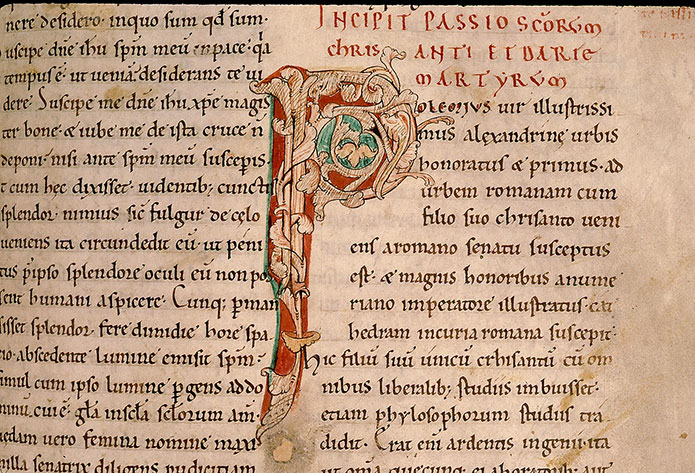 nere desidero · inquo sum qđ sum ·
uscipe dñe ihu spm̄ meū inpace · qa
tempus ē · ut ueniā · desiderans te ui
dere · Suscipe me dñe ihu xpe magis
ter bone · & iube me de ista cruce ñ
deponi · nisi ante spm̄ meū susceperis ·
t cum hec dixisset · uidentib; cunctis
splendor · nimius sic fulgur de cęlo
ueniens ita circundedit eū · ut peni
tus p̱ ipso splendore oculi eū non po
sent humani aspicere · Cunq; p̱man
sisset splendor · fere dimidie hore spa
io · abscedente lumine emisit spm̄ ·
simul cum ipso lumine p̱gens ad do
minū · cui ē · gl̄a in scl̄a scl̄orum am̄
uedam uero femina nomine maxi
milla senatrix diligens pudicitiam
INCIPIT PASSIO SC̄ORUM
CHRISANTI ET DARIE
MARTYRUM
POLEOIUS uir illustrissi
mus alexandrinę urbis
honoratus & primus · ad
urbem romanam cum
filio suo chrisanto ueni
ens aromano senatu susceptus
est · & magnis honoribus anume
riano imperatore illustratus · cat
hedram incuria romana suscepit ·
hic filiū suū unicū crhisantū cū om
nibus liberalib; studiis imbuisset ·
etiam phylosophorum studiis tra
didit · Erat enī ardentis ingenii · ita
ut omnia quecunq; elaboratib; aut